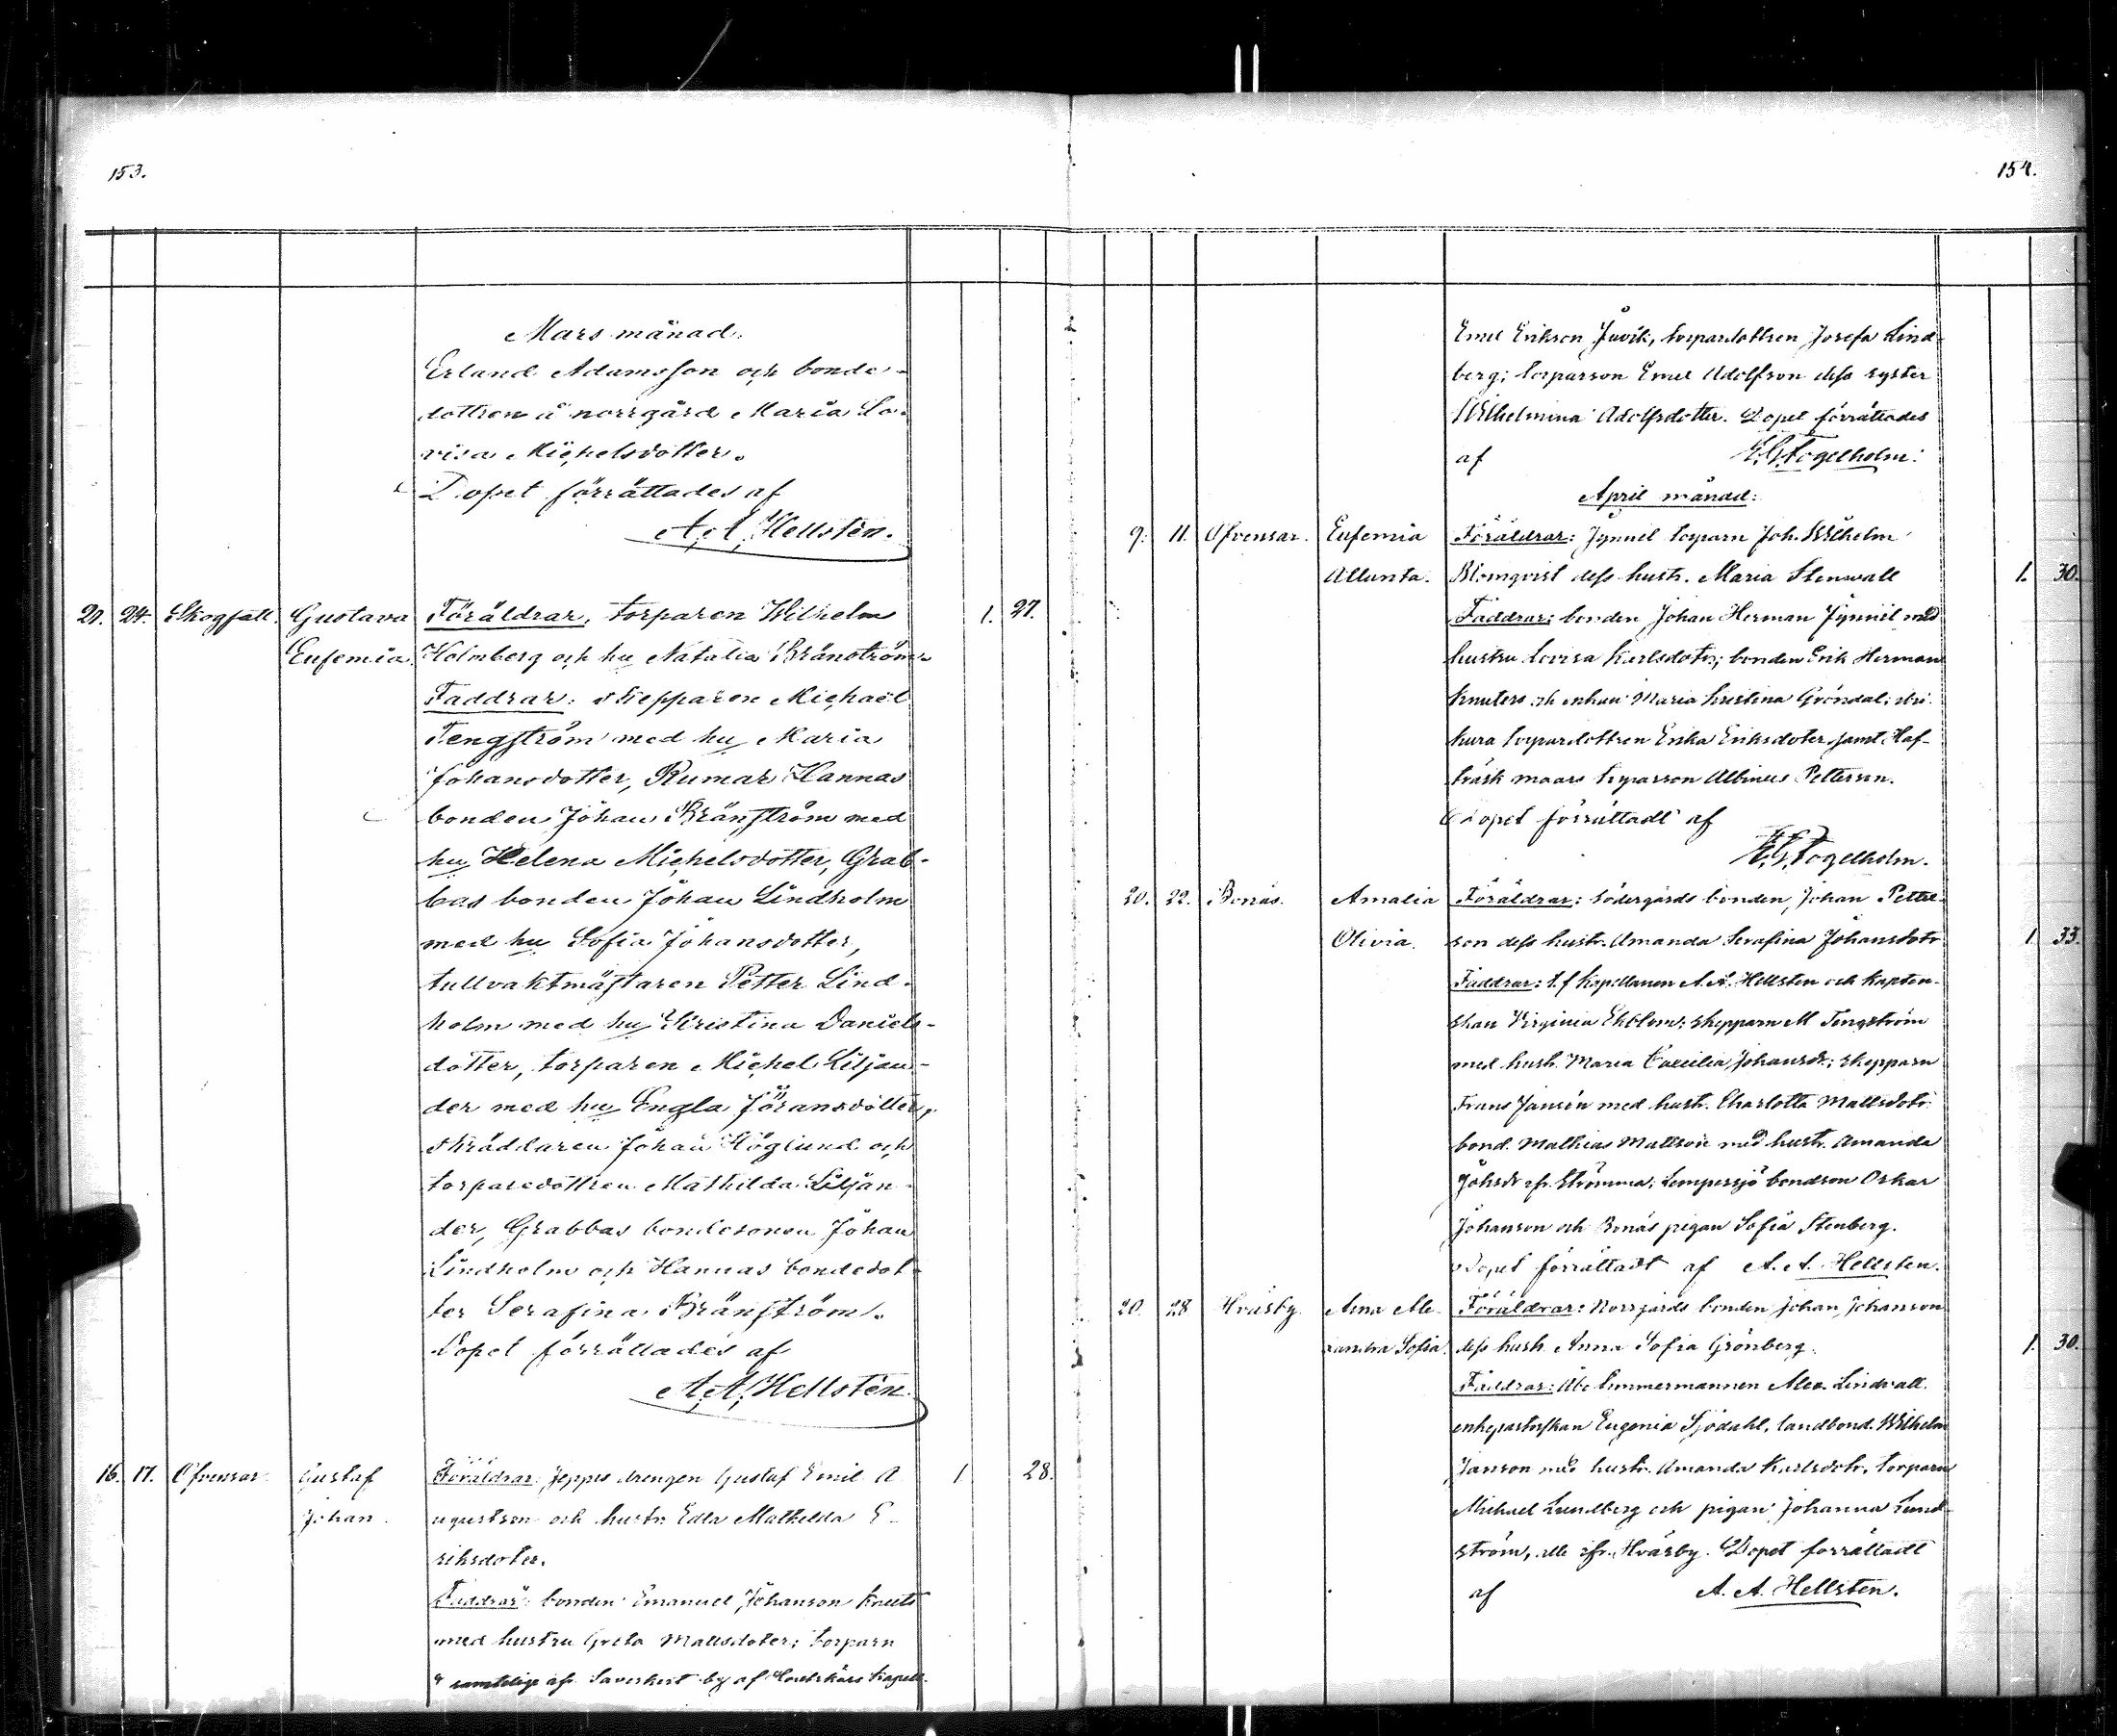 153.
Mars månad.
Erland Adamsson och bonde-
dottren å norrgård Maria Lo-
visa Michelsdotter.
Dopet förrättades af
A. A. Hellstén.
21. 24. Skogfall. Gustava Föräldrar, torparen Wilhelm 1. 27.
Eufemia. Holmberg och hu Natalia Bränström.
Faddrar: skepparen Michaël
Tengström med hu Maria
Johansdotter, Rumar Hannas
bonden Johan Bränström med
hu Helena Michelsdotter, Grab-
bas bonden Johan Lindholm
med hu Sofia Johansdotter,
tullvaktmästaren Petter Lind-
holm med hu Kristina Daniels-
dotter, torparen Michel Liljan-
der med hu Engla Jöransdotter,
skräddaren Johan Höglund och
torparedottren Mathilda Liljan-
der, Grabbas bondesonen Johan
Lindholm och Hannas bondedot-
ter Serafina Bränström.
Dopet förrättades af
A. A. Hellstén.
16. 17. Ofvensar. Gustaf Föräldrar: Jeppes drengen Gustaf Emil A 1 28.
Johan. ugustson och hustr. Edla Mathilda E-
riksdoter.
Faddrar: bonden Emanuel Johanson Knuts
med hustru Greta Mattsdoter; torparn
samtelige afr by af kapell.
154.
Emil Erikson Juvik, torpardottren Josefa Lind-
berg; torparson Emil Adolfson dess syster
Wilhelmina Adolfsdotter. Dopet förrättades
af E. G. Fogelholm.
April månad:
9. 11. Ofvensar. Eufemia Föräldrar: Jynnil torparn Joh. Wilhelm
Allanta. Blomqvist dess hustr. Maria Stenwall 1. 30.
Faddrar: bonden Johan Herman Jynnil med
hustru Lovisa Karlsdotr; bonden Erik Herman
Knuters och enkan Maria Kristina Gröndal;
torpardottren Erika Eriksdoter samt Haf-
träsk torparson Albinus Petterson.
Dopet förrättadt af
E. G. Fogelholm.
20. 22. Bonäs. Amalia Föräldrar: södergårds bonden, Johan Petter-
Olivia. son dess hustr. Amanda Serafina Johansdotr 1 33.
Faddrar: t.f Kapellanen A. A. Hellsten och kapten-
skan Virginia Ekblom; skepparn M Tengström
med hustr. Maria Caecilia Johansdr; skepparn
Frans Jansén med hustr. Charlotta Mattsdotr
bond. Mathias Mattson med hustr. Amanda
Johsdr afr. Strömma; Lempersjö bondson Oskar
Johanson och Bonäs pigan Sofia Stenberg.
Dopet förrättadt af A. A. Hellsten.
20. 28 Hväsby. Anna Ale- Föräldrar: Norrgårds bonden Johan Johanson
xandra Sofia. dess hustr. Anna Sofia Grönberg. 1. 30.
Faddrar: Åbo timmermannen Alex. Lindvall.
enkepastorskan Eugenia Sjödahl, landbond. Wilhelm
Janson med hustr. Amanda Karlsdotr, torparn
Michael Lundberg och pigan Johanna Lund-
ström, alle ifr. Hväsby. Dopet förrättadt
af A. A. Hellsten.